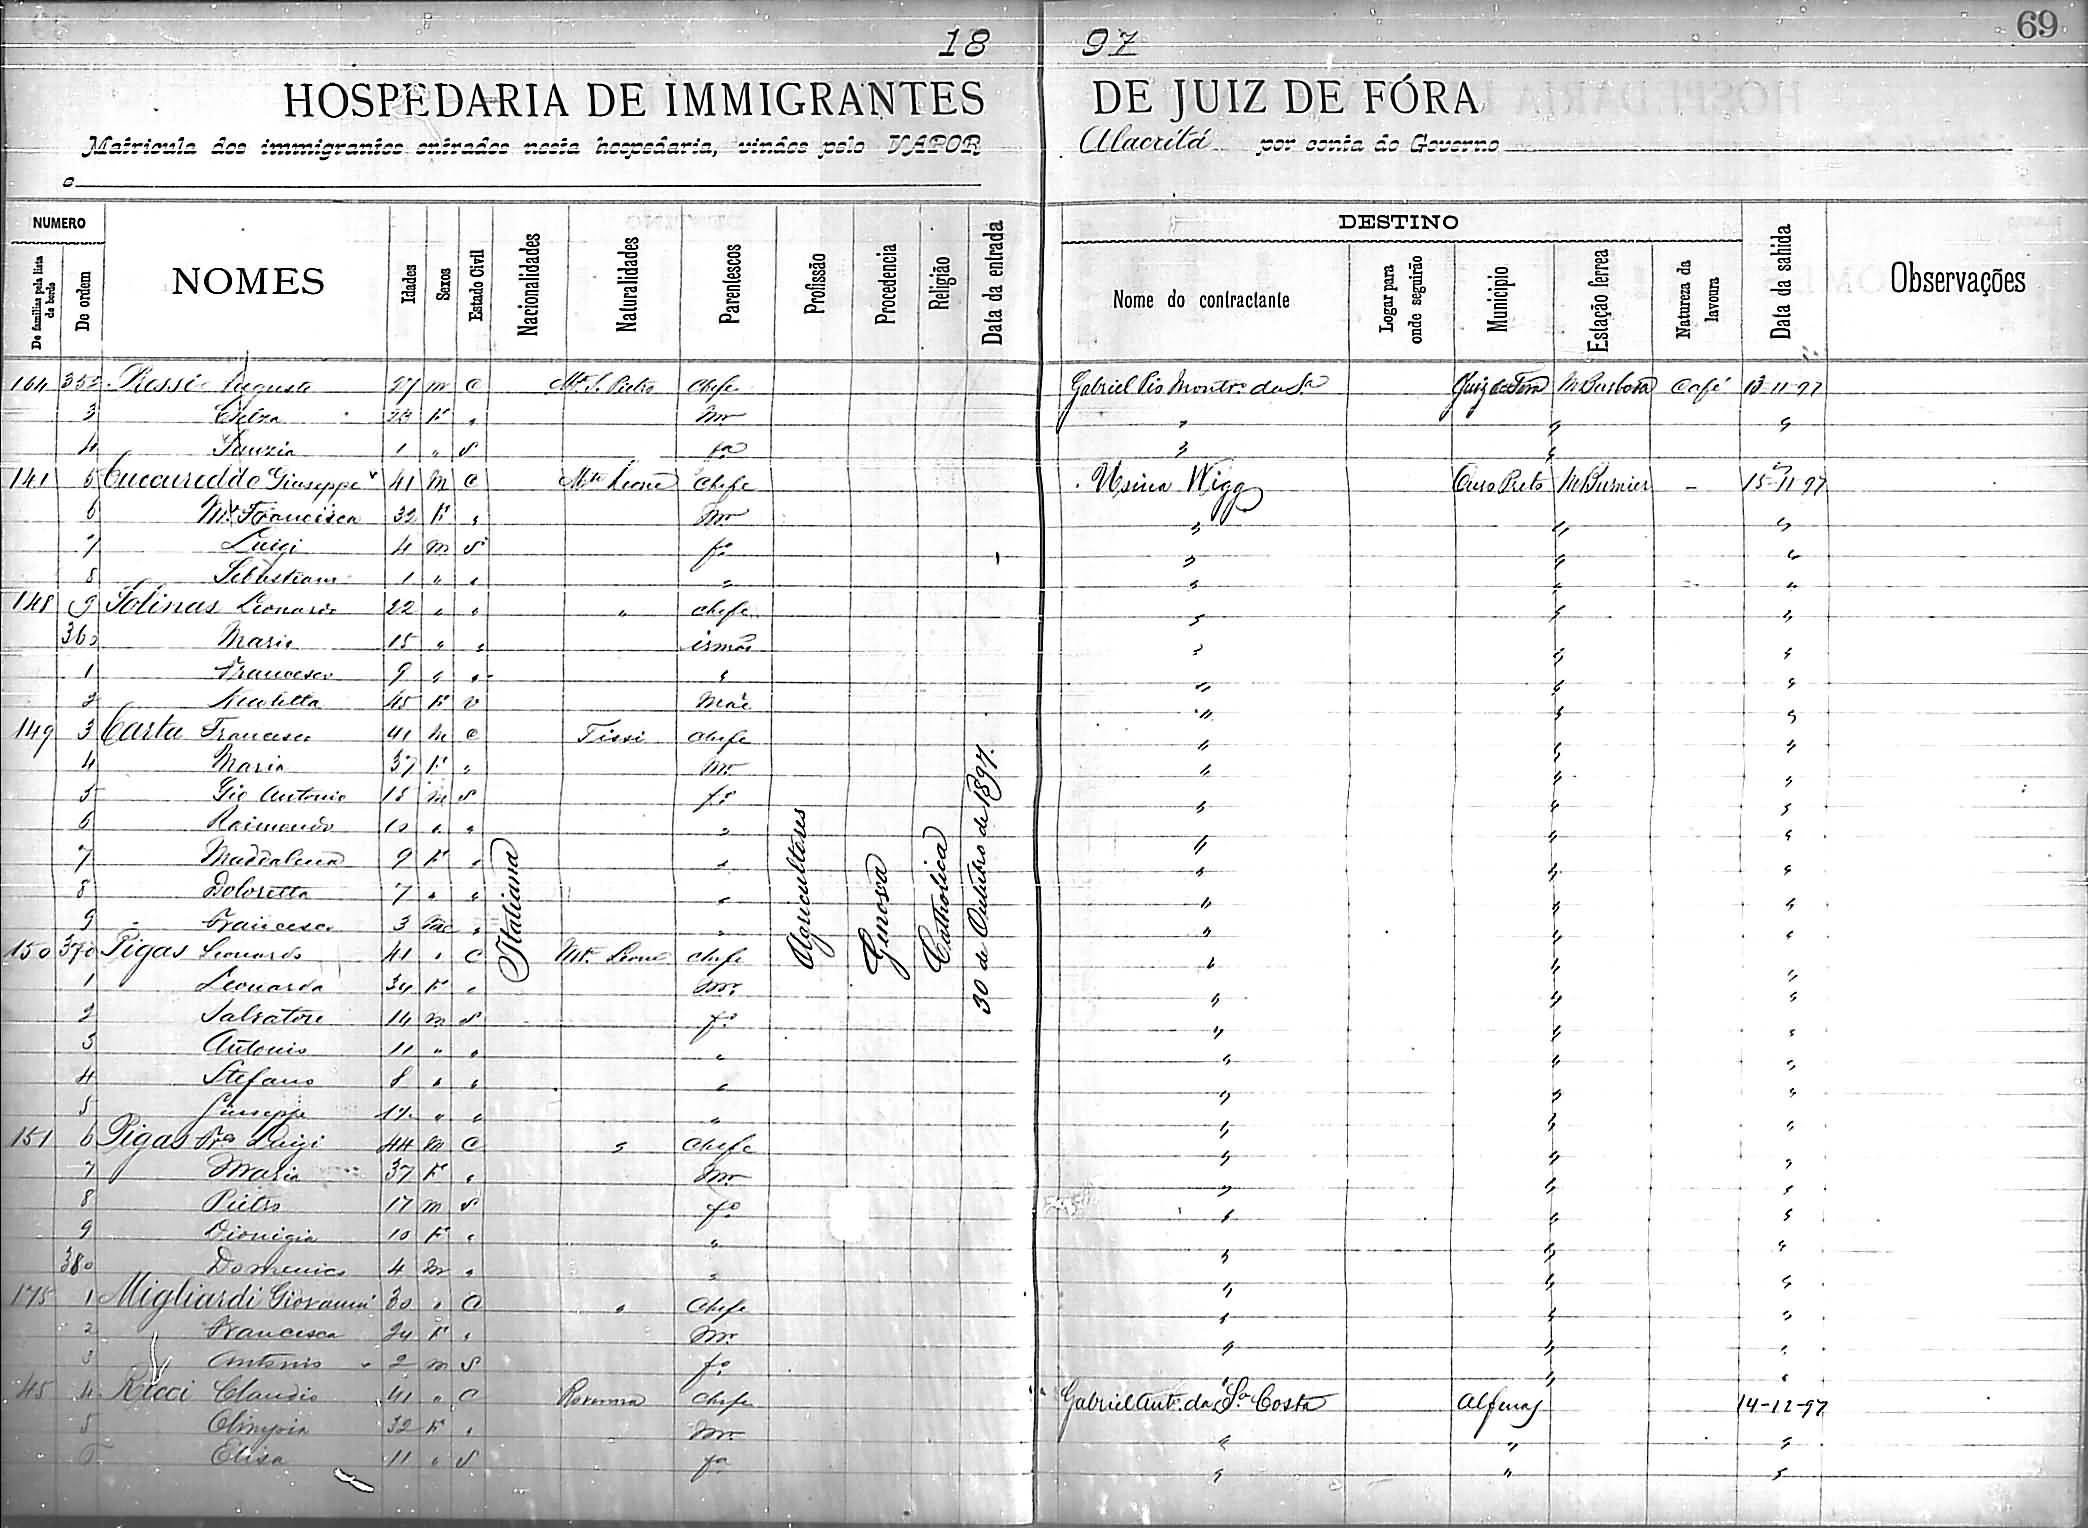 69
18 97
HOSPEDARIA DE IMMIGRANTES DE JUIZ DE FÓRA
Matricula dos immigrantes entrados nesta hospedaria, vindos pelo VAPOR Alacritá por conta do Governo
e
NUMERO
De familias pela lista de bordo
De ordem
NOMES
Idades
Sexos
Estado Civil
Nacionalidades
Naturalidades
Parentescos
Profissão
Procedencia
Religião
Data da entrada
DESTINO
Nome do contractante
Logar para onde seguirão
Municipio
Estação ferrea
Natureza da lavoura
Data da sahida
Observações
Italiana
Agricultores
Genova
Catholica
30 de Outubro de 1897.
164 352 Rossi Augusto 27 m C Mte. S. Pietro Chefe Gabriel Pio Montro. da Sa. Juiz de Fora M Barbosa Café 13-11-97
3 23 F " Mr " " "
4 1 " S fa " " "
141 5 Cuccureddo Giuseppe 41 M C Mte Leone Chefe Usina Wigg Ouro Preto M Burnier - 15-11-97
6 Ma. Francisca 32 F " Mr " " "
7 Luigi 4 m S fo " " "
8 Sebastiano 1 " " " " " "
148 9 Solinas Leonardo 22 " " " Chefe " " "
360 Mario 15 " " irmão " " "
1 Francesco 9 " " " " " "
2 Nicoletta 45 F v Mãe " " "
149 3 Carta Francesco 41 M C Tissi Chefe " " "
4 Maria 37 F " Mr " " "
5 Gio Antonio 15 m S fo " " "
6 Raimondo 10 " " " " " "
7 Maddalena 9 F " " " " "
8 Doloretta 7 " " " " " "
9 Francesco 3 m " " " " "
150 370 Pigas Leonardo 41 " C Mte. Leone Chefe " " "
1 Leonarda 34 F " Mr. " " "
2 Salvatore 14 m S fo " " "
3 Antonio 11 " " " " " "
4 Stefano 8 " " " " " "
5 Giuseppe " " " " " "
151 6 Pigas Fra Luigi 44 m C " Chefe " " "
7 Maria 37 F " Mr. " " "
8 Pietro 17 m S fo " " "
9 Dionigia 10 F " " " " "
380 Domenico 4 m " " " " "
175 1 Migliardi Giovanni 30 " C " Chefe " " "
2 Francesca 24 F " Mr. " " "
3 Antonio 2 m S fo " " "
45 4 Ricci Claudio 41 " C Ravenna Chefe Gabriel Ant. da Sa. Costa Alfenas 14-12-97
5 Olimpia 32 F " Mr " " "
6 Elisa 11 " S fa " " "